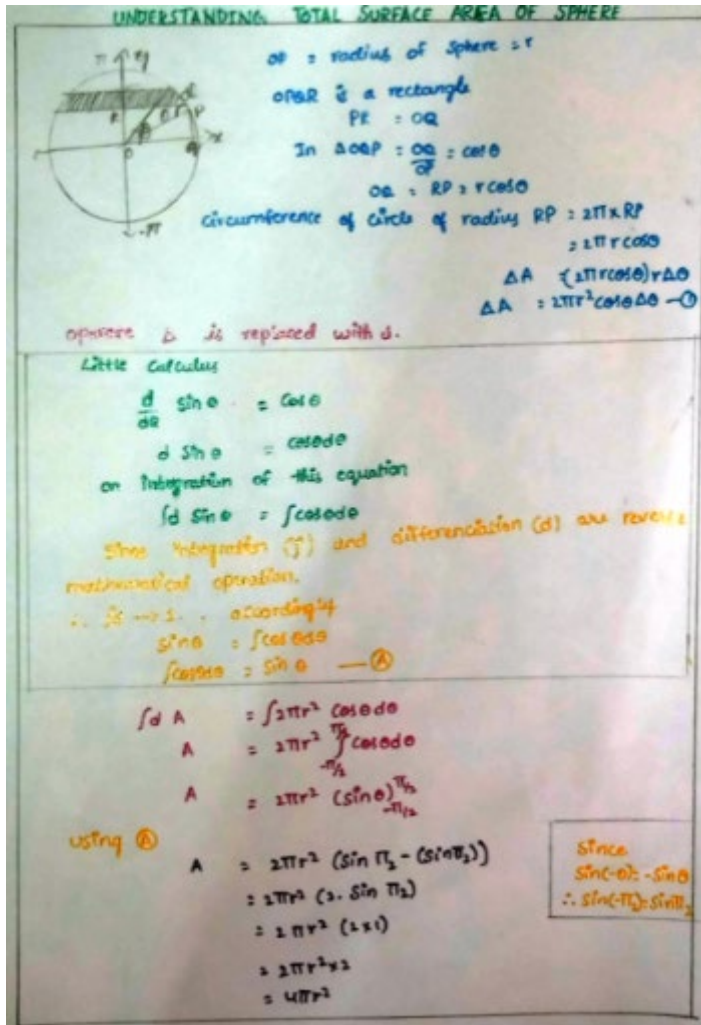 UNDERSTANDING TOTAL SURFACE AREA OF SPHERE
OP = radius of sphere = r
OPQR is a rectangle
PR = OQ
In ΔOQP = OQ/OP = cosθ
OQ = RP = rcosθ
circumference of circle of radius RP = 2π×RP
= 2πrcosθ
ΔA = (2πrcosθ)rΔθ
ΔA = 2πr²cosθΔθ —①
is replaced with d.
Little Calculus
d/dθ sinθ = Cosθ
d Sinθ = cosθdθ
on integration of this equation
∫d sinθ = ∫cosθdθ
Since integration (∫) and differenciation (d) are reverse
mathematical operation.
accordingly
sinθ = ∫cosθdθ
∫cosθdθ = Sinθ —Ⓐ
∫d A = ∫2πr² Cosθdθ
A = 2πr² ∫cosθdθ π/2 -π/2
A = 2πr² (sinθ) π/2 -π/2
using Ⓐ
A = 2πr² (Sin π/2 - (Sinπ/2))
= 2πr² (2. Sin π/2)
= 2πr² (2×1)
= 2πr²×2
= 4πr²
Since
Sin(-θ)= -Sinθ
∴ Sin(-π/2)=Sinπ/2